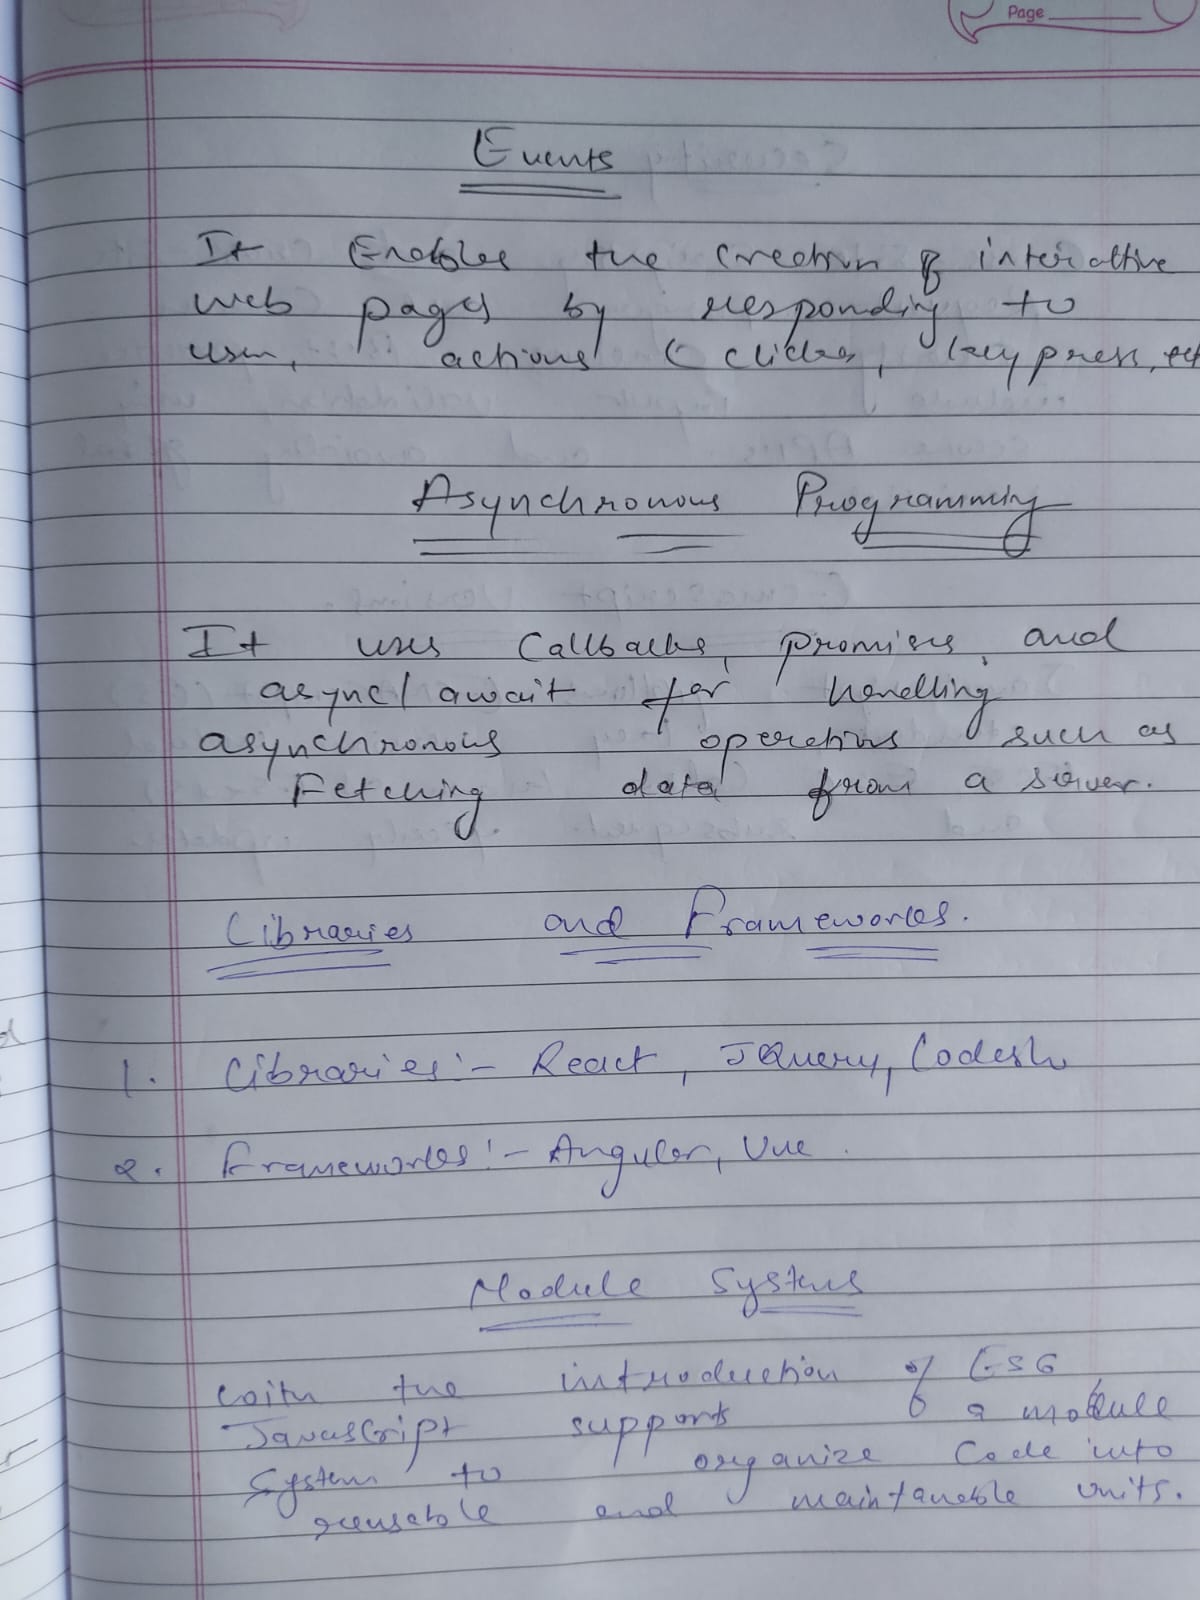 Page
Events
It Enables the Creation of interactive
web pages by responding to
user, actions ( clicks, keypress, etc
Asynchronous Programming
It uses Callbacks, promises, and
async/await for handling
asynchronous operations such as
Fetching data from a server.
Libraries and Frameworks.
1. Libraries:- React, JQuery, Lodash
2. Frameworks:- Angular, Vue.
Module System
With the introduction of ES6
JavaScript supports a module
System to organize Code into
reusable and maintanable units.